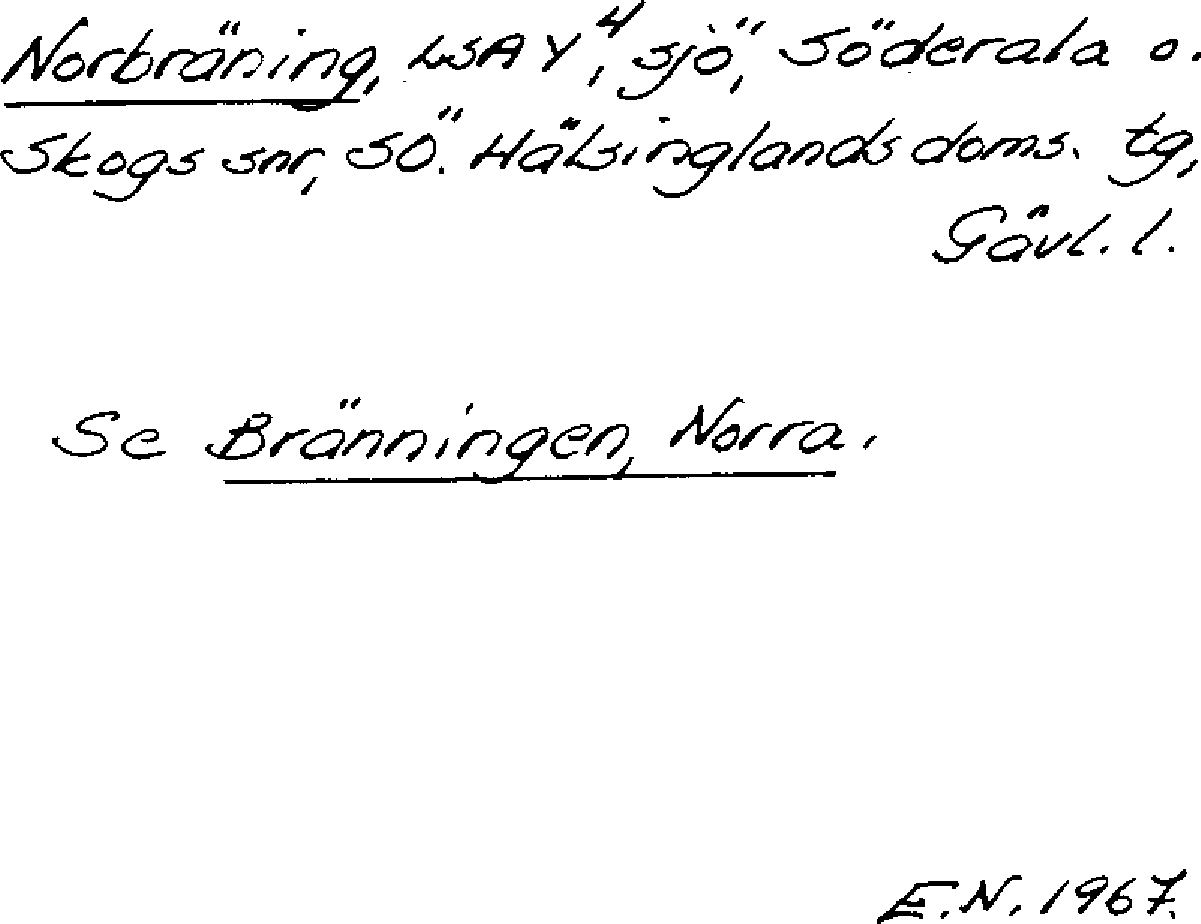 Norbräning, LSA Y⁴, sjö, Söderala o.
Skogs snr, SÖ. Hälsinglands doms. tg,
Gävl. l.
Se Bränningen, Norra.
E.N. 1967.